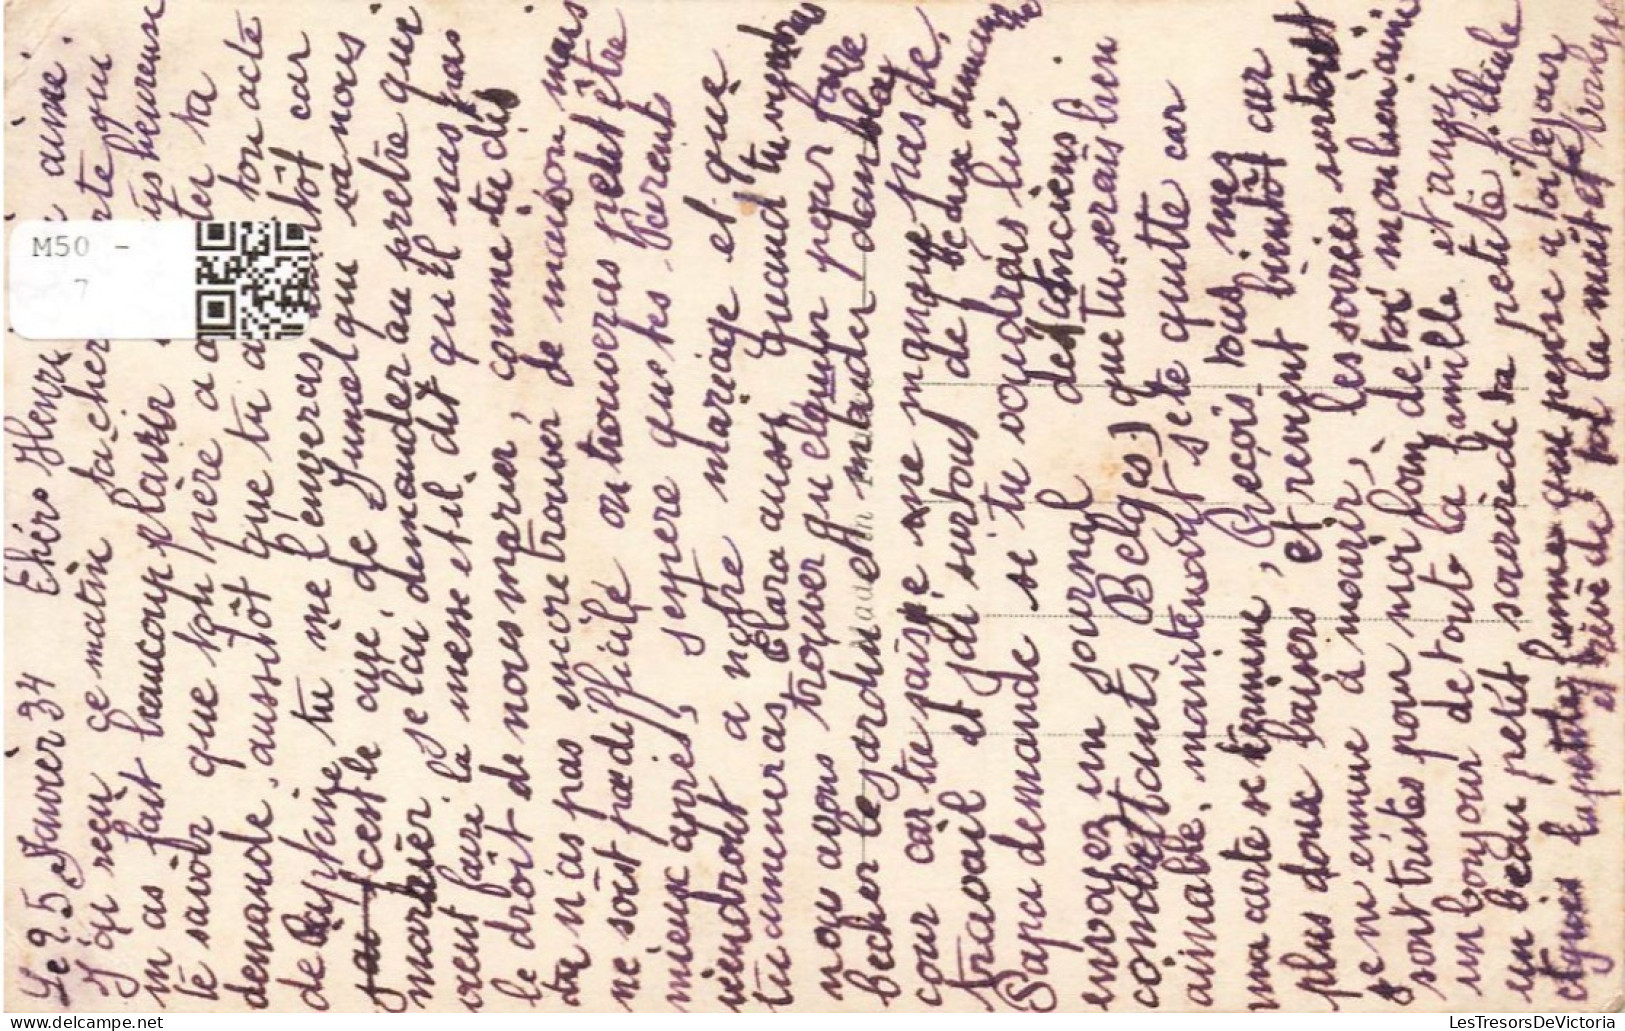 Le 25 Janvier 34 Chéro Henri aimé.
J'ai reçu ce matin ta cher qui
m as fait beaucoup plaisir heureuse
te savoir que ton père a ta
demande, aussitôt que tu a ton acte
de baptême tu me l'enverras car
c'est le curé, de Jumel qui va nous
marier se lai demander au prètre qui
vient faire la messe et il dit qu'il n'as pas
le droit de nous marier, comme tu dis
tu n'as pas encore trouver de maison mais
ne soit pas difficile on trouveras peut être
mieux après, j'espère que tes Parents
viendront a notre mariage et que
tu ameneras Clara aussi quand tu viendras
nous avons trouver quelqu'un pour faire
becher le jardin et mander
cour car tu sais je me manque pas de,
travail et joli surtout de beaux dimanche
Papa demande si tu voudrais lui
envoyez un journal des anciens
combattants Belges) que tu serais bien
aimable, maintenant je te quitte car
ma carte se termine, Reçois tous mes
plus doux baisers et revient bientôt car
je m ennuie à mourir, les soirées surtout
sont tristes pour moi loin de toi mon bien aimé
un bonjour de tout la famille et ange
un beau petit sourire de ta petite filleule
et qui pense a toi jour
et rêve de toi la nuit
M50 -
7
delcampe.net
LesTresorsDeVictoria